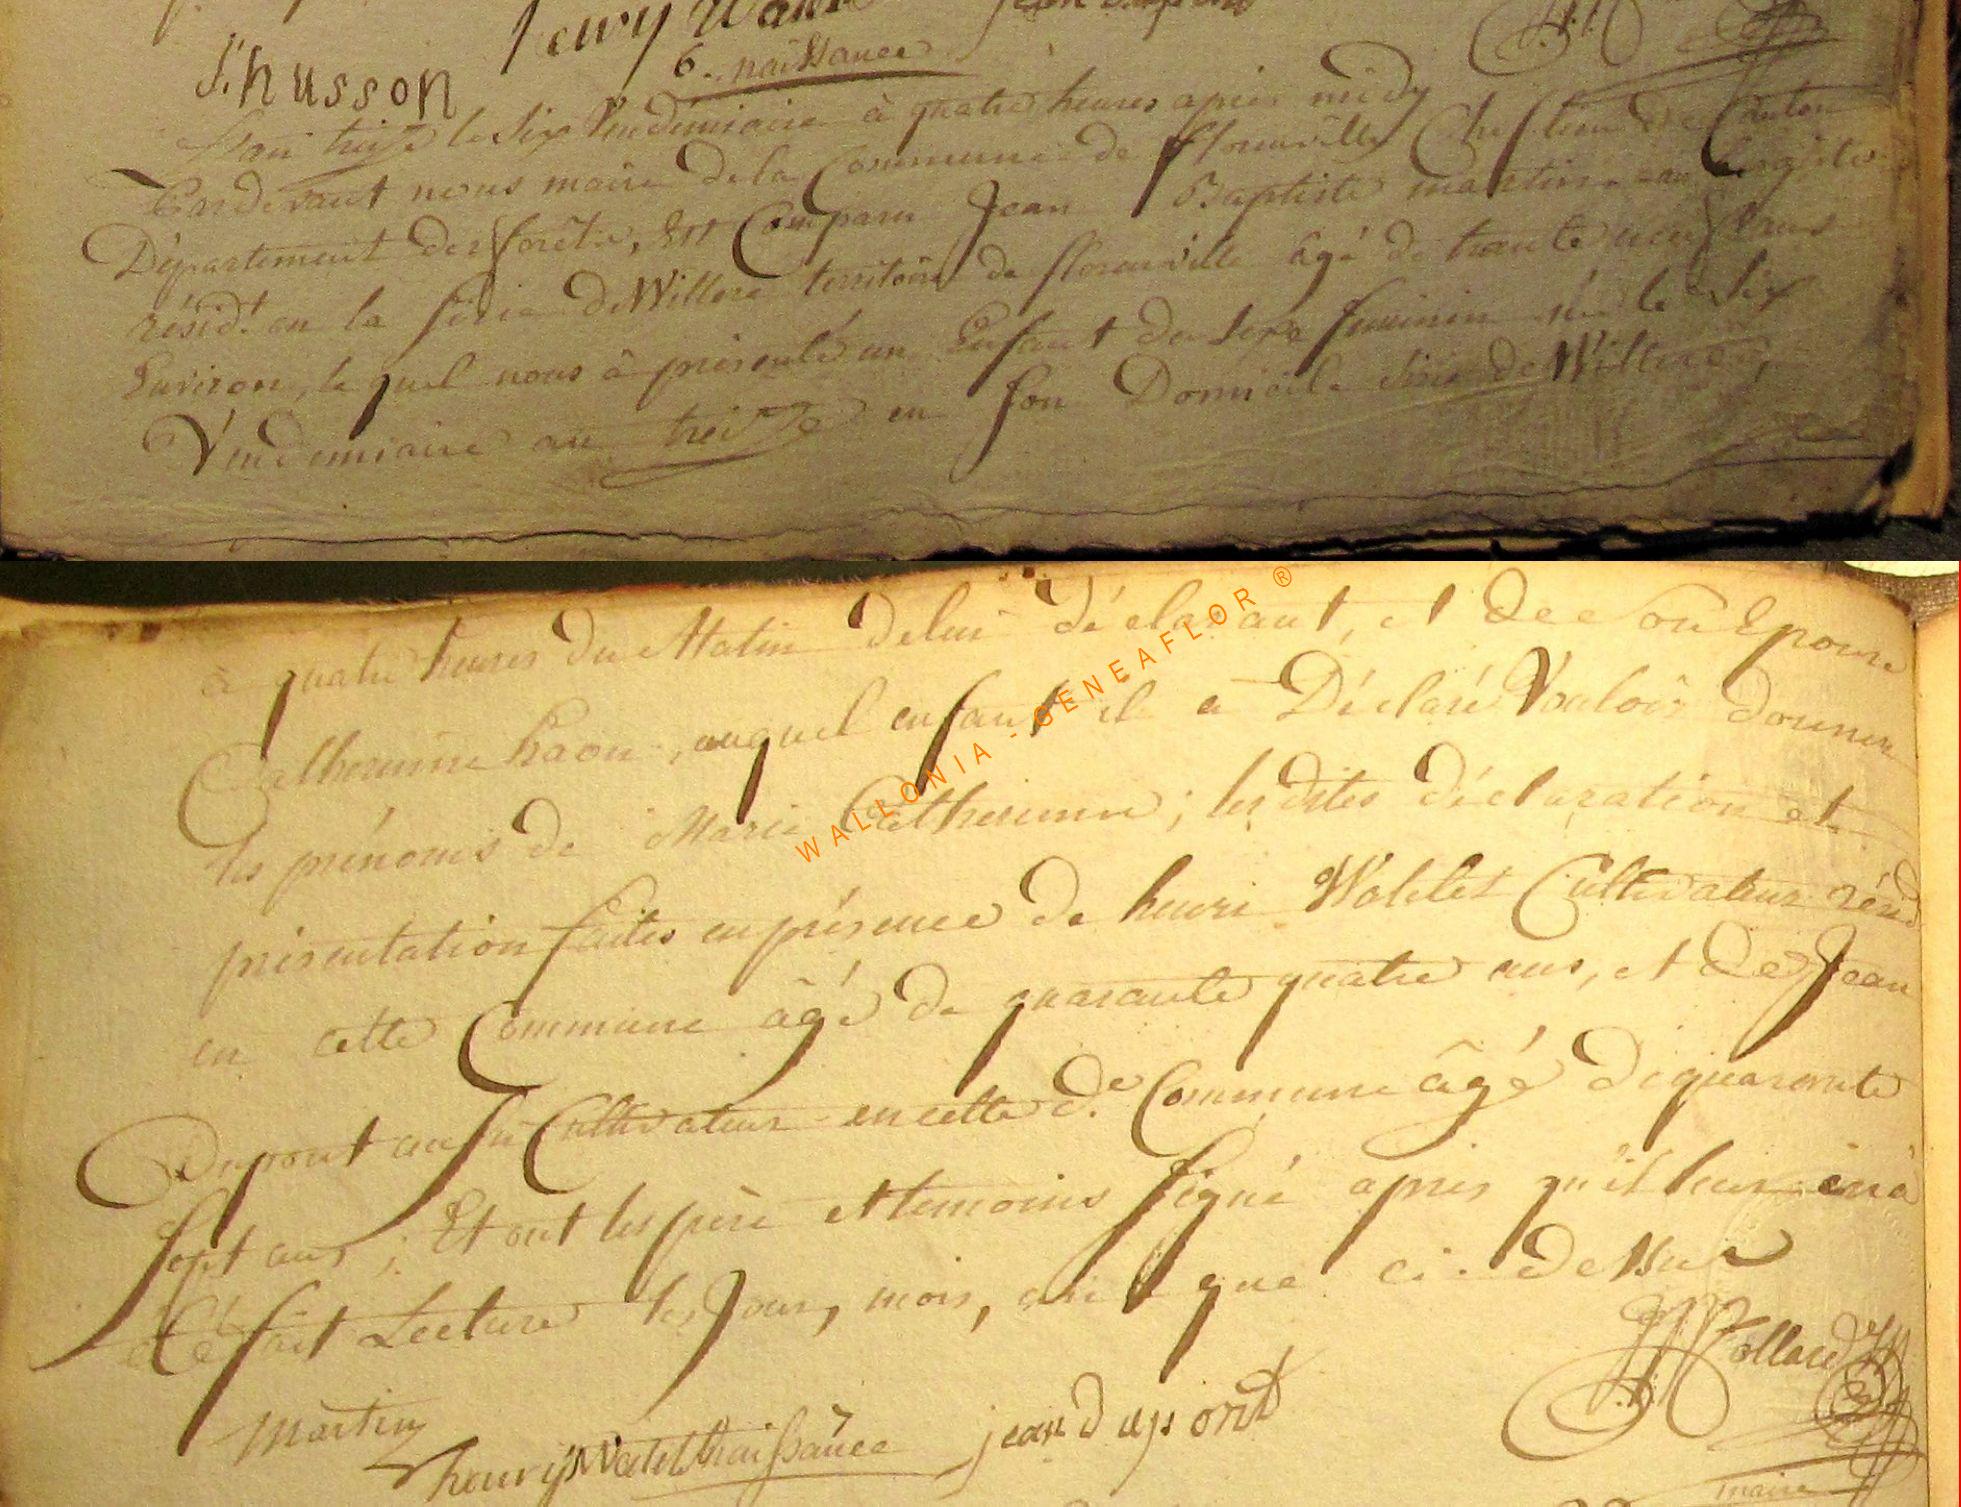 henry Wa
J. husson
6. naissance
L'an treize le Six Vendémiaire à quatre heures après midy
Pardevant nous maire de la Commune de florenville Chef lieu de Canton
Département des forêts, Est Comparu Jean Baptiste martin
résidt. en la de Willere territoire de florenville âgé de trente neuf ans
Environ, le quel nous à présenté un Enfant du sexe feminin né le Six
Vendemiaire an treize en son Domicile de Willere,
à quatre heures du Matin de lui déclarant, et de Son Epouse
Catherinne haon, auquel enfant il a Déclaré Vouloir donner
les prénoms de Marie Catherinne ; les dites déclaration et
présentation faites en présence de henri Watelet Cultivateur résid
en cette Commune âgé de quarante quatre ans, et De Jean
Dupont aussi Cultivateur en cette de. Commune âgé de quarante
Sept ans ; Et ont les père et temoins Signé après qu'il leur en à
été fait Lecture les Jour, mois, an que ci-dessus
JN Collard
martin
henry Watelet
naissance
jean dupont
maire
WALLONIA - GENEAFLOR ®